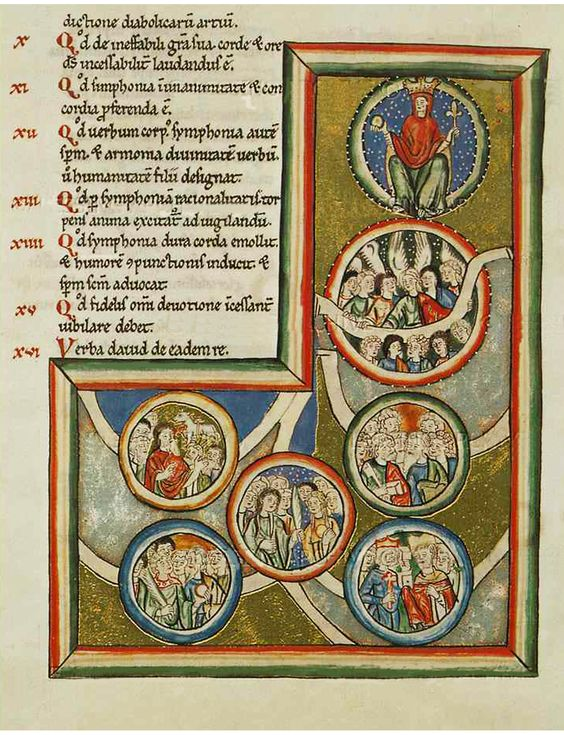 dictione diabolicarū artiū.
x Qd de ineffabili grā sua corde & ore
ds incessabiliť laudandus ē.
xi Qd simphonia ī unanimitate & con
cordia pferenda ē.
xii Qd uerbum corp' symphonia aūtē
spm. & armonia diuinitatē uerbū
ū humanitatē filii designat.
xiii Qd p symphoniā racionalitatis tor
pens anima excitat' ad uigilandū.
xiiii Qd symphonia dura corda emollit.
& humorē ɔpunctionis inducit. &
spm scm aduocat.
xv Qd fidelis omī deuotione īcessanť
iubilare debet.
xvi Verba dauid de eadem re.